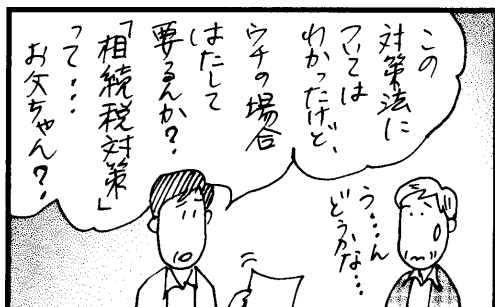 この
対策法に
ついては
わかったけど、
ウチの場合
はたして
要るんか?.
「相続税対策」
って・・・
お父ちゃん?.
う・・・ん
どうかな・・・